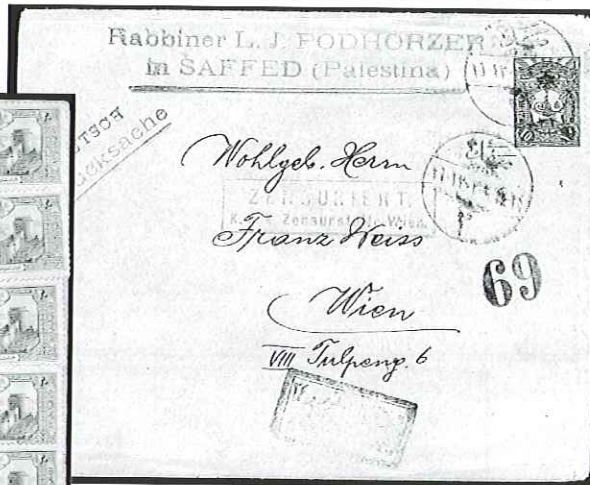 Rabbiner L. J. PODHORZER
in SAFFED (Palestina)
Wohlgeb. Herrn
ZENSURIERT
K. Zensurstelle Wien
Franz Weiss
69
Wien
VIII Tulpeng. 6